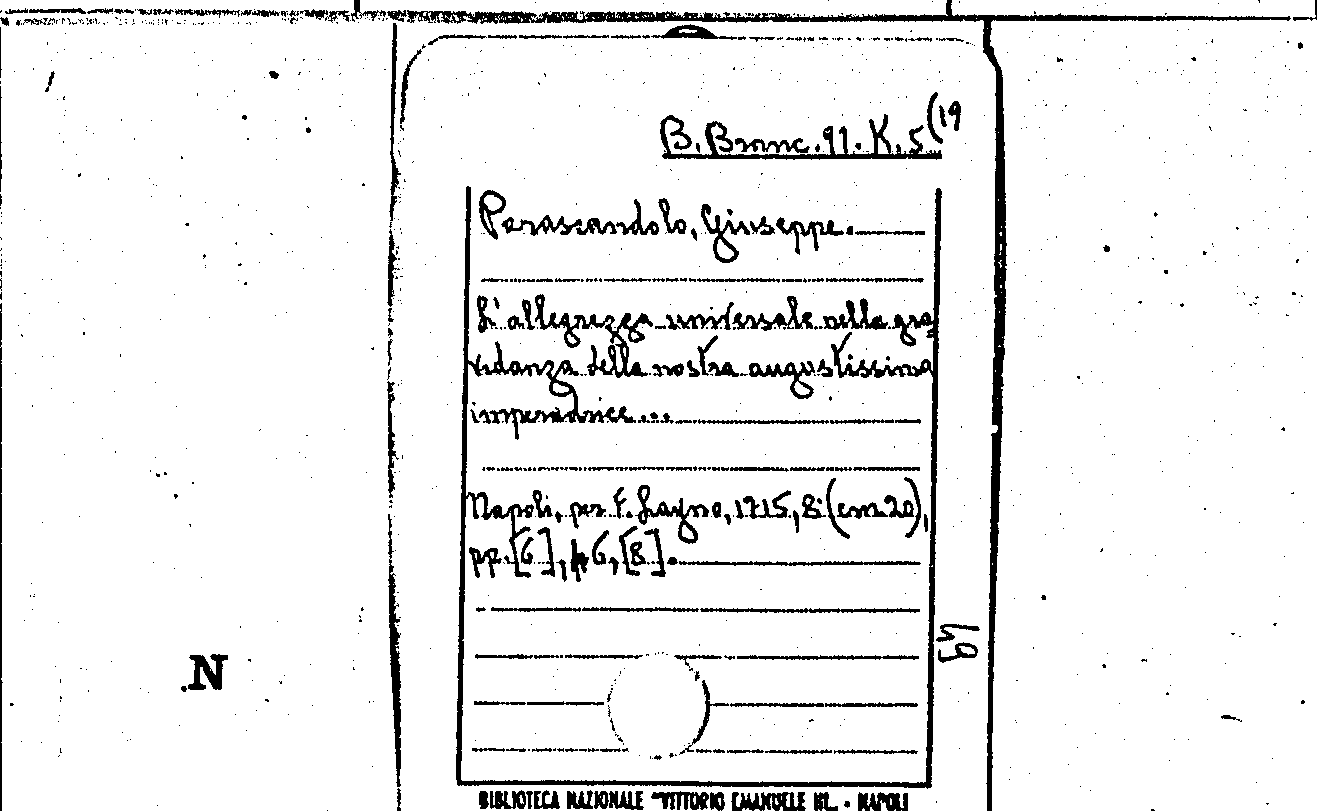 B. Branc. 91. K. 5(19
Parascandolo, Giuseppe.
L'allegrezza universale nella gra
vidanza della nostra augustissima
imperadrice...
Napoli, per F. Layno, 1715, 8° (cm. 20),
pp. [6], 46, [8].
N
BIBLIOTECA NAZIONALE "VITTORIO EMANUELE III" - NAPOLI